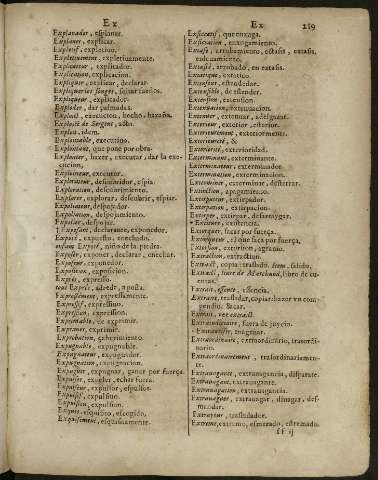 Ex
Explanader, esplanar.
Explaner, explicar.
Expletif, expletivo.
Expletivement, expletivamente.
Explicateur, explicador.
Explication, explicacion.
Expliquer, explicar, declarar.
Expliquer, explicador.
Exploder, dar palmadas.
Exploit, executos, hecho, hazaña.
Exploit de Sergent, acto.
Exploitable, executivo.
Exploitant, que pone por obra.
Exploiter, hazer, executar, dar la execucion.
Exploiteur, executor.
Explorateur, descubridor, espia.
Exploration, descubrimiento.
Explorer, explorar, descubrir, espiar.
Expoliateur, despojador.
Expoliation, despojamiento.
Expolier, despojar.
Exposant, declarante, exponedor.
Exposé, expuesto, enechado.
enfant Exposé, niño de la piedra.
Exposer, exponer, declarar, enechar.
Exposeur, exponedor.
Exposition, exposicion.
Exprés, expresso.
tout Exprés, adrede, aposta.
Expressément, expressamente.
Expressif, expressivo.
Expression, expression.
Exprimable, de exprimir.
Exprimer, exprimir.
Exprobation, çaherimiento.
Expugnable, expugnable.
Expugnateur, expugnador.
Expugnation, expugnacion.
Expugner, expugnar, ganar por fuerça.
Expulser, expeler, echar fuera.
Expulseur, expulsor, expulsor.
Expulsif, expulsivo.
Expulsion, expulsion.
Exquis, esquisito, escogido.
Exquisement, esquisitamente.
Ex 219
Exsiccatif, que enxuga.
Exsiccation, enxugamiento.
Extase, arrobamiento, extasis,
Extasié, arrobado, en extasis.
Extatique, extatico.
Extenser, estendedor.
Extensible, de estender.
Extension, extension.
Extenuation, extenuacion.
Extenuer, extenuar, adelgazar.
Exterieur, exterior, esterior.
Exterieurement, exteriormente.
Exterieureté, &
Exteriorité, exterioridad.
Exterminant, exterminante.
Exterminateur, exterminador.
Extermination, exterminacion.
Exterminer, exterminar, desterrar.
Extinction, apagamiento.
Extirpateur, extirpador.
Extirpation, extirpacion.
Extirper, extirpar, desarraygar.
Extorquer, sacar por fuerça.
Extorqueur, el que saca por fuerça.
Extorsion, extorsion, agravio.
Extraction, extraccion.
Extrait, copia, traslado. Item, salido.
Extrait, livre de Marchand, libro de cuentas.
Extrait, essence, essencia.
Extraire, trasladar, copiar, hazer un compendio. Sacar.
Extraordinaire, extraordinario, trasordinario.
Extraordinairement, trasordinariamente.
Extravagance, extravagancia, disparate.
Extravagant, extravagante.
Extravagation, extravagancia.
Extravaguer, extravagar, divagar, desmandar.
Extrayeur, trasladador.
Extreme, extremo, esmerado, estremado.
ff ij